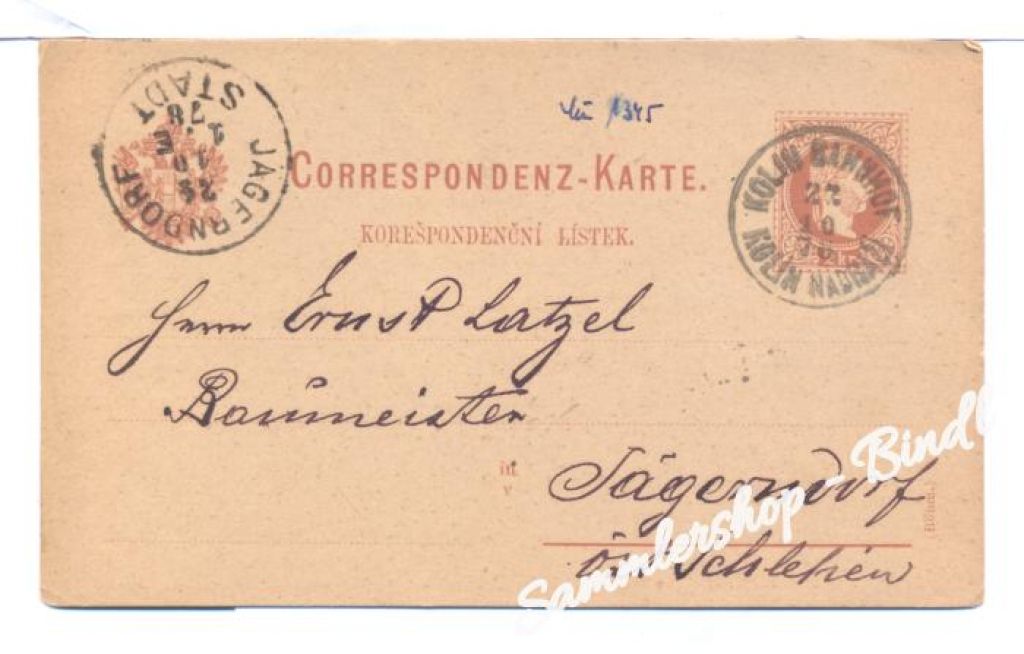 JÄGERNDORF
STADT
23
10
78
1345
CORRESPONDENZ-KARTE.
KOREŠPONDENČNÍ LÍSTEK.
KOLIN BAHNHOF
22
10
78
KOLÍN NÁDRAŽÍ
Herrn Ernst Latzel
Baumeister
in
v
Jägerndorf
Öst Schlesien
Sammlershop - Bindl